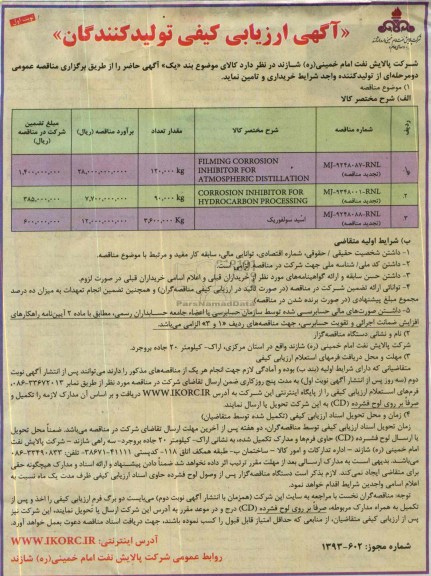 نوبت اول
«آگهی ارزیابی کیفی تولیدکنندگان»
شرکت پالایش نفت امام خمینی(ره) شازند در نظر دارد کالای موضوع بند «یک» آگهی حاضر را از طریق برگزاری مناقصه عمومی
دومرحله‌ای از تولیدکننده واجد شرایط خریداری و تامین نماید.
۱) موضوع مناقصه
الف) شرح مختصر کالا
ردیف شماره مناقصه شرح مختصر کالا مقدار تعداد برآورد مناقصه (ریال) مبلغ تضمین شرکت در مناقصه (ریال)
۱ MJ-۹۲۴۸۰۸۷-RNL (تجدید مناقصه) FILMING CORROSION INHIBITOR FOR ATMOSPHERIC DISTILLATION ۱۲۰,۰۰۰ KG ۲۸,۰۰۰,۰۰۰,۰۰۰ ۱,۴۰۰,۰۰۰,۰۰۰
۲ MJ-۹۳۴۸۰۰۱-RNL (تجدید مناقصه) CORROSION INHIBITOR FOR HYDROCARBON PROCESSING ۹۰,۰۰۰ KG ۷,۷۰۰,۰۰۰,۰۰۰ ۳۸۵,۰۰۰,۰۰۰
۳ MJ-۹۲۴۸۰۸۸-RNL (تجدید مناقصه) اسید سولفوریک ۳,۶۰۰,۰۰۰ Kg ۱۲,۰۰۰,۰۰۰,۰۰۰ ۶۰۰,۰۰۰,۰۰۰
ب) شرایط اولیه متقاضی
۱- داشتن شخصیت حقیقی / حقوقی، شماره اقتصادی، توانایی مالی، سابقه کار مفید و مرتبط با موضوع مناقصه.
۲- داشتن کد ملی/ شناسه ملی جهت شرکت در مناقصه الزامی است.
۳- داشتن حسن سابقه و ارائه گواهینامه‌های مورد نظر از خریداران قبلی و اعلام اسامی خریداران قبلی در صورت لزوم.
۴- توانائی ارائه تضمین شرکت در مناقصه (در صورت تائید در ارزیابی کیفی مناقصه‌گران) و همچنین تضمین انجام تعهدات به میزان ده درصد
مجموع مبلغ پیشنهادی (در صورت برنده شدن در مناقصه)
ParsNamadData
۵- داشتن صورت‌های مالی حسابرسی شده توسط سازمان حسابرسی یا اعضاء جامعه حسابداران رسمی، مطابق با ماده ۲ آیین‌نامه راهکارهای
افزایش ضمانت اجرائی و تقویت حسابرسی، جهت مناقصه‌های ردیف «۱ و ۳» الزامی می‌باشد.
۲) نام و نشانی دستگاه مناقصه‌گزار
شرکت پالایش نفت امام خمینی(ره) شازند واقع در استان مرکزی، اراک- کیلومتر ۲۰ جاده بروجرد.
۳) مهلت و محل دریافت فرمهای استعلام ارزیابی کیفی
متقاضیانی که دارای شرایط اولیه (بند ب) بوده و آمادگی لازم جهت انجام هر یک از مناقصه‌های مذکور را دارند می‌توانند پس از انتشار آگهی نوبت
دوم (سه روز پس از انتشار آگهی نوبت اول) به مدت پنج روزکاری ضمن ارسال تقاضای شرکت در مناقصه مورد نظر از طریق نمابر ۳۳۶۷۲۰۱۳-۰۸۶،
فرم‌های استعلام ارزیابی کیفی را از پایگاه اینترنتی این شرکت به آدرس WWW.IKORC.IR دریافت و بر اساس آن مدارک لازمه را تکمیل و
صرفاً بر روی لوح فشرده (CD) به این شرکت تحویل یا ارسال نمایند
۴) زمان و محل تحویل اسناد ارزیابی کیفی (تکمیل شده توسط متقاضیان)
زمان تحویل اسناد ارزیابی کیفی توسط مناقصه‌گران، دو هفته پس از آخرین مهلت ارسال تقاضای شرکت در مناقصه می‌باشد. ضمناً محل تحویل
یا ارسال لوح فشرده (CD) حاوی فرم‌ها و مدارک تکمیل شده، به نشانی اراک- کیلومتر ۲۰ جاده بروجرد- سه راهی شازند – شرکت پالایش نفت
امام خمینی (ره) شازند – اداره تدارکات و امور کالا – ساختمان ب- طبقه همکف اتاق ۱۱۸- کدپستی ۴۱۱۱۱-۳۸۶۷۱- تلفن: ۳۳۴۹۰۸۳۳-۰۸۶
می‌باشند. بدیهی است به مدارک ارسالی بعد از مهلت مقرر ترتیب اثر داده نخواهد شد ضمناً دادن پیشنهاد و ارائه اسناد و مدارک هیچگونه حقی
برای متقاضی ایجاد نمی کند. لازم بذکر است دستگاه مناقصه‌گزار پس از وصول لوح فشرده حاوی اسناد ارزیابی کیفی ظرف مدت یک ماه نسبت به
اعلام اسامی واجدین شرایط اقدام خواهد نمود.
توجه: مناقصه‌گران نخست با مراجعه به سایت این شرکت (همزمان با انتشار آگهی نوبت دوم) می‌بایست دو برگ فرم ارزیابی کیفی را اخذ و پس از
تکمیل به همراه مدارک مربوطه، صرفاً بر روی لوح فشرده (CD) درج و در موعد مقرر به آدرس این شرکت ارسال یا تحویل نمایند، این شرکت نیز
پس از ارزیابی کیفی متقاضیان، از منابعی که حداقل امتیاز قابل قبول را کسب نموده باشند، جهت دریافت اسناد مناقصه دعوت بعمل خواهد آورد.
آدرس اینترنتی: WWW.IKORC.IR
روابط عمومی شرکت پالایش نفت امام خمینی(ره) شازند
شماره مجوز: ۶۰۲-۱۳۹۳